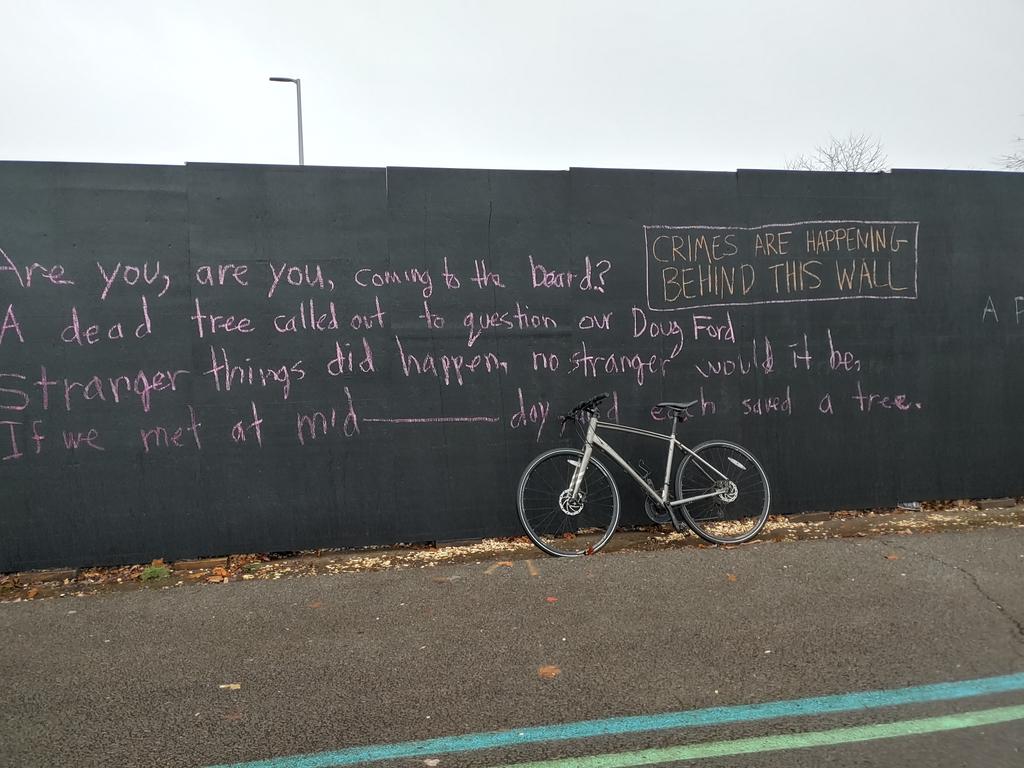 Are you, are you, coming to the board?
A dead tree called out to question our Doug Ford
Stranger things did happen, no stranger would it be,
If we met at mid day each saved a tree.
CRIMES ARE HAPPENING
BEHIND THIS WALL
A